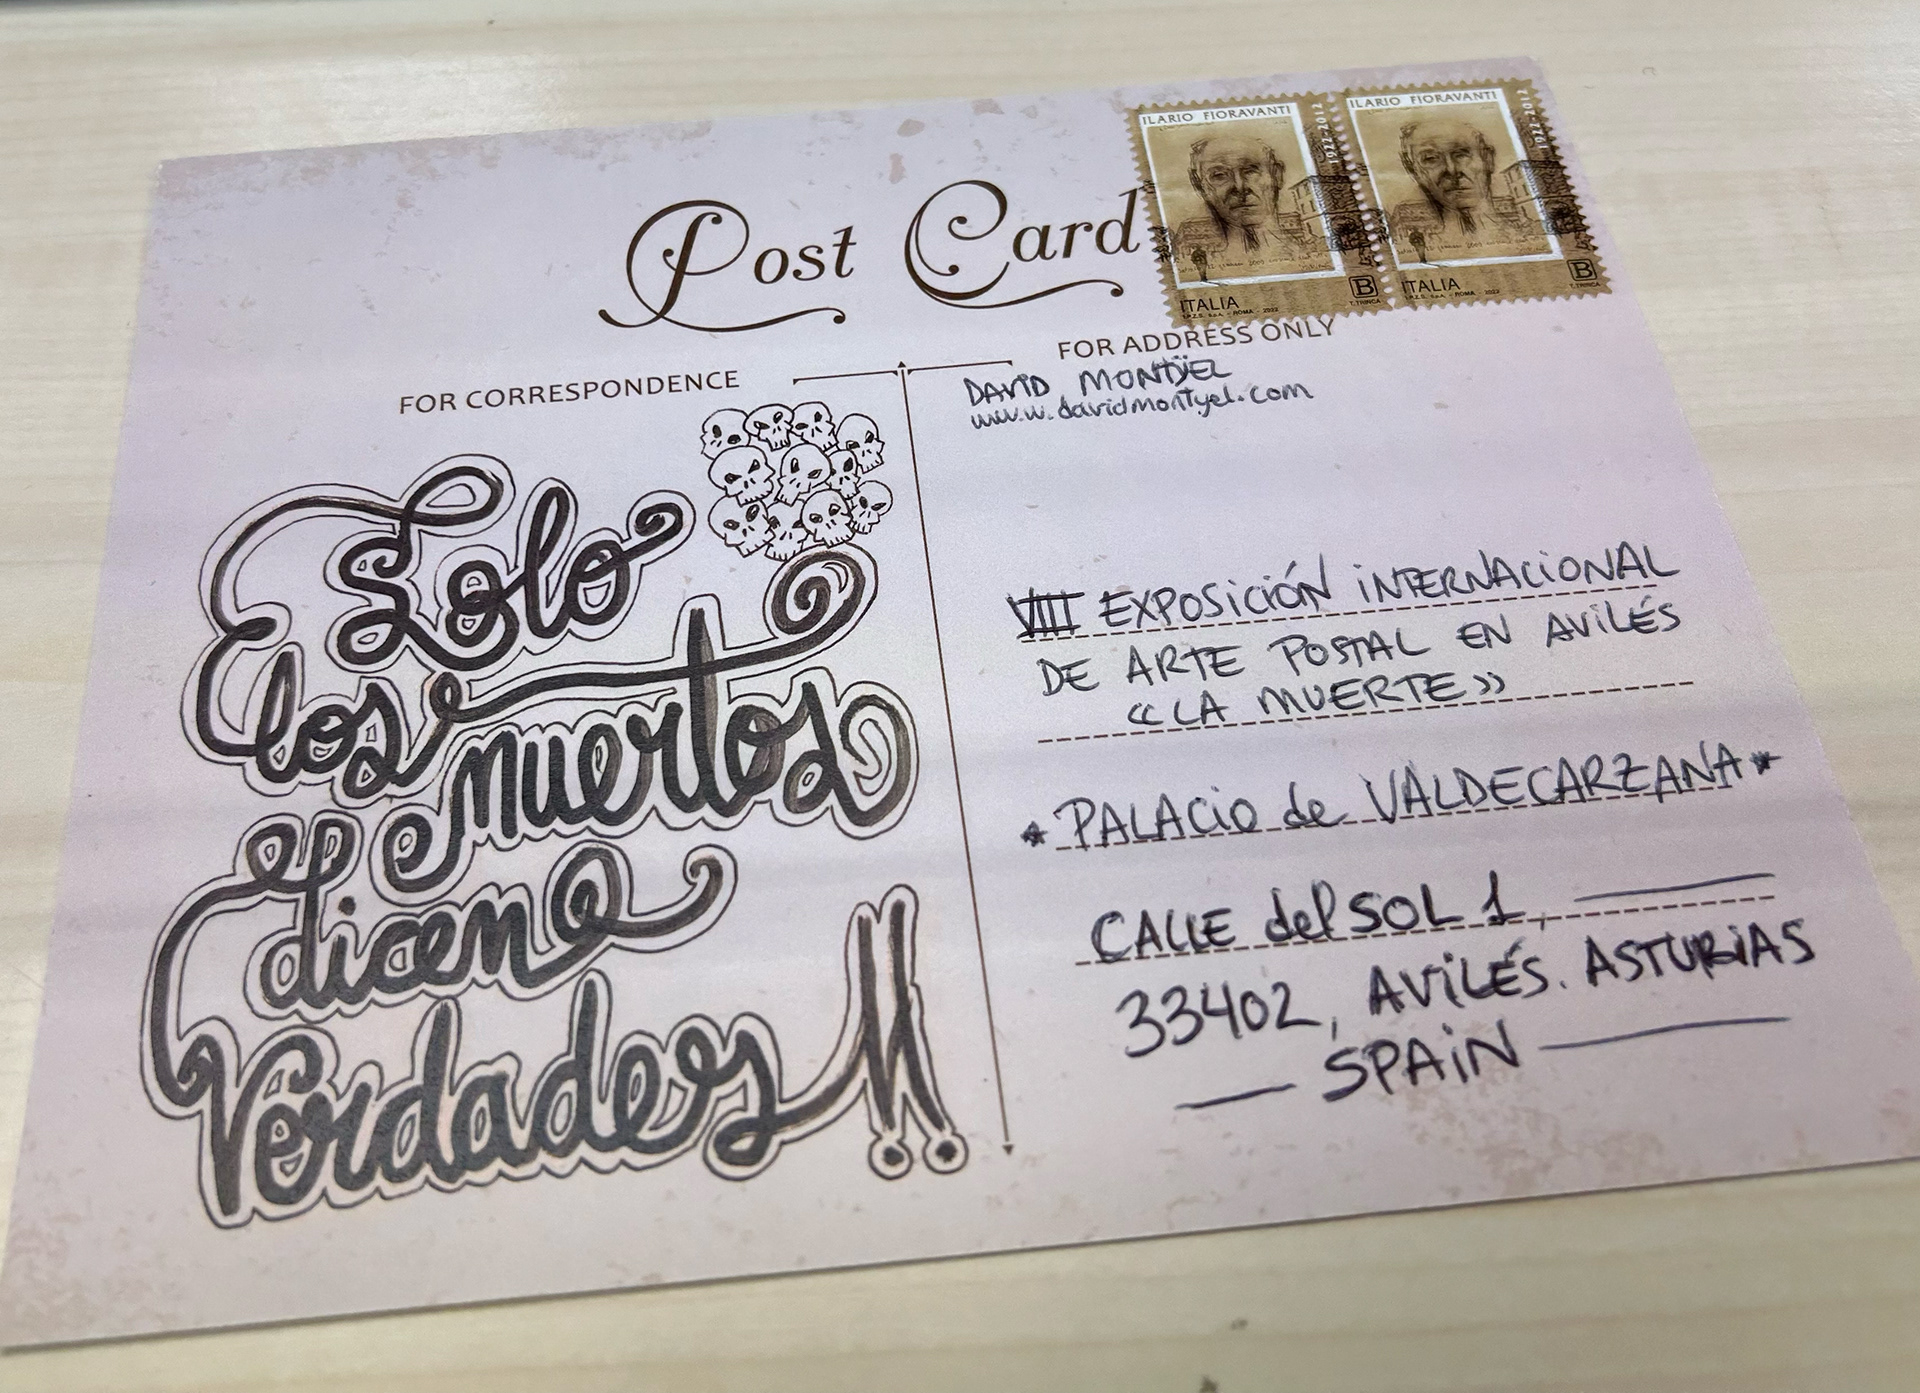 Post Card
ILARIO FIORAVANTI
1922-2012
ITALIA
B
I.P.Z.S. S.p.A. - ROMA - 2022
T. TRINCA
ILARIO FIORAVANTI
1922-2012
ITALIA
B
I.P.Z.S. S.p.A. - ROMA - 2022
T. TRINCA
FOR CORRESPONDENCE
FOR ADDRESS ONLY
Solo
los muertos
dicen
Verdades
DAVID MONTYEL
www.davidmontyel.com
VIII EXPOSICIÓN INTERNACIONAL
DE ARTE POSTAL EN AVILÉS
«LA MUERTE»
* PALACIO de VALDECARZANA *
CALLE del SOL 1,
33402, AVILÉS. ASTURIAS
SPAIN